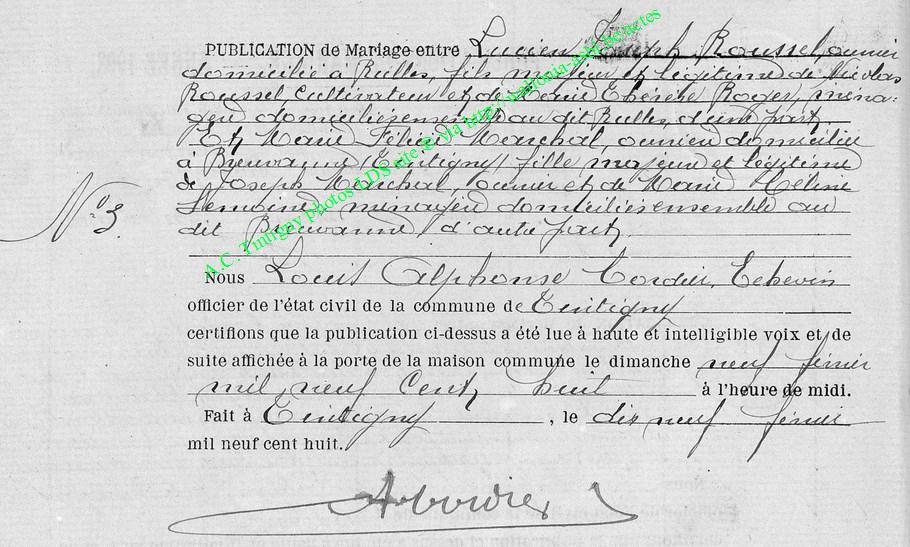 PUBLICATION de Mariage entre Lucien Joseph Roussel, ouvrier
domicilié à Rulles, fils majeur et légitime de Nicolas
Roussel Cultivateur et de Marie Thérèse Roger, ména-
gère domiciliés ensemble au dit Rulles, d'une part.
Et Marie Félicie Marchal, ouvrière domiciliée
à Breuvanne (Tintigny) fille majeure et légitime
de Joseph Marchal, ouvrier et de Marie Céline
Lemoine, ménagère domiciliés ensemble au
dit Breuvanne, d'autre part.
N° 3.
Nous Louis Alphonse Cordier, Echevin
officier de l'état civil de la commune de Tintigny
certifions que la publication ci-dessus a été lue à haute et intelligible voix et de
suite affichée à la porte de la maison commune le dimanche neuf février
mil neuf cent huit à l'heure de midi.
Fait à Tintigny, le dix neuf février
mil neuf cent huit.
A.C. Tintigny photos LDS site @ via http://